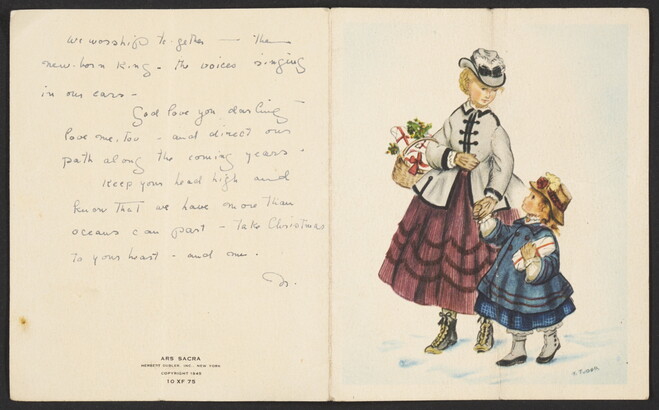 we worship together — the
new-born King - the voices singing
in our ears -
God love you, darling -
love me, too - and direct our
path along the coming years -
Keep your head high and
know that we have more than
oceans can part - Take Christmas
to your heart - and me.
ARS SACRA
HERBERT DUBLER, INC., NEW YORK
COPYRIGHT 1943
10 XF 75
T. TUDOR